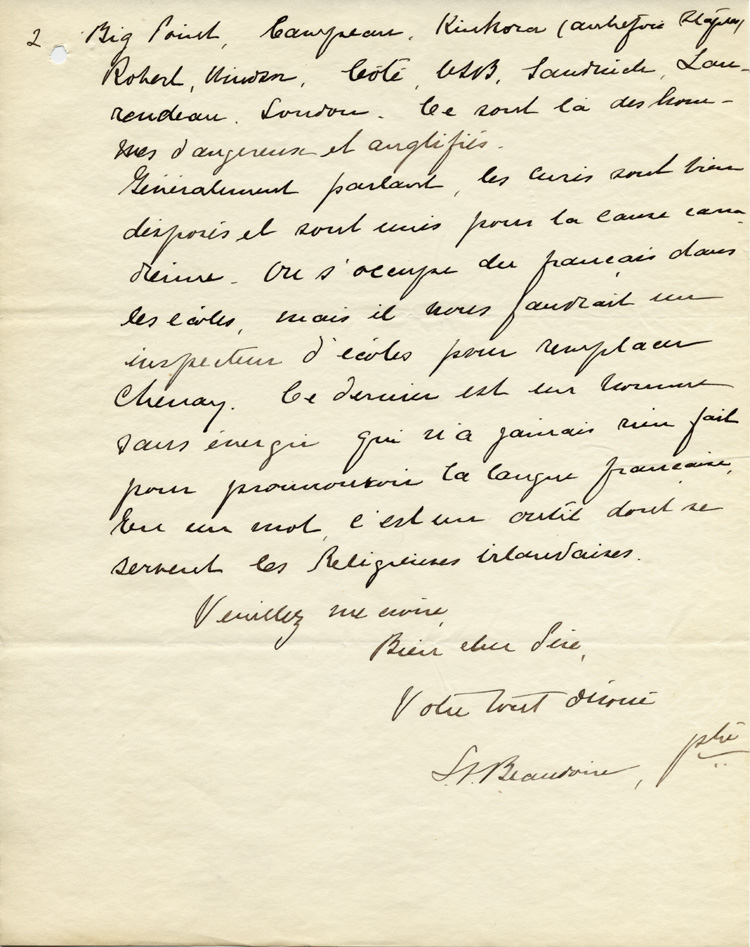 2 Big Point, Campeau, Kinkora (autrefois Staples)
Robert, Windsor, Côté, OSB, Sandwich, Lau-
rendeau, London. Ce sont là des hom-
mes dangereux et anglifiés.
Généralement parlant, les curés sont bien
disposés et sont unis pour la cause cana-
dienne. On s'occupe du français dans
les écoles, mais il nous faudrait un
inspecteur d'écoles pour remplacer
Chenay. Ce dernier est un homme
sans énergie qui n'a jamais rien fait
pour promouvoir la langue française.
En un mot, c'est un outil dont se
servent les Religieuses irlandaises.
Veuillez me croire,
Bien cher Père,
Votre tout dévoué
Beaudoin, ptre